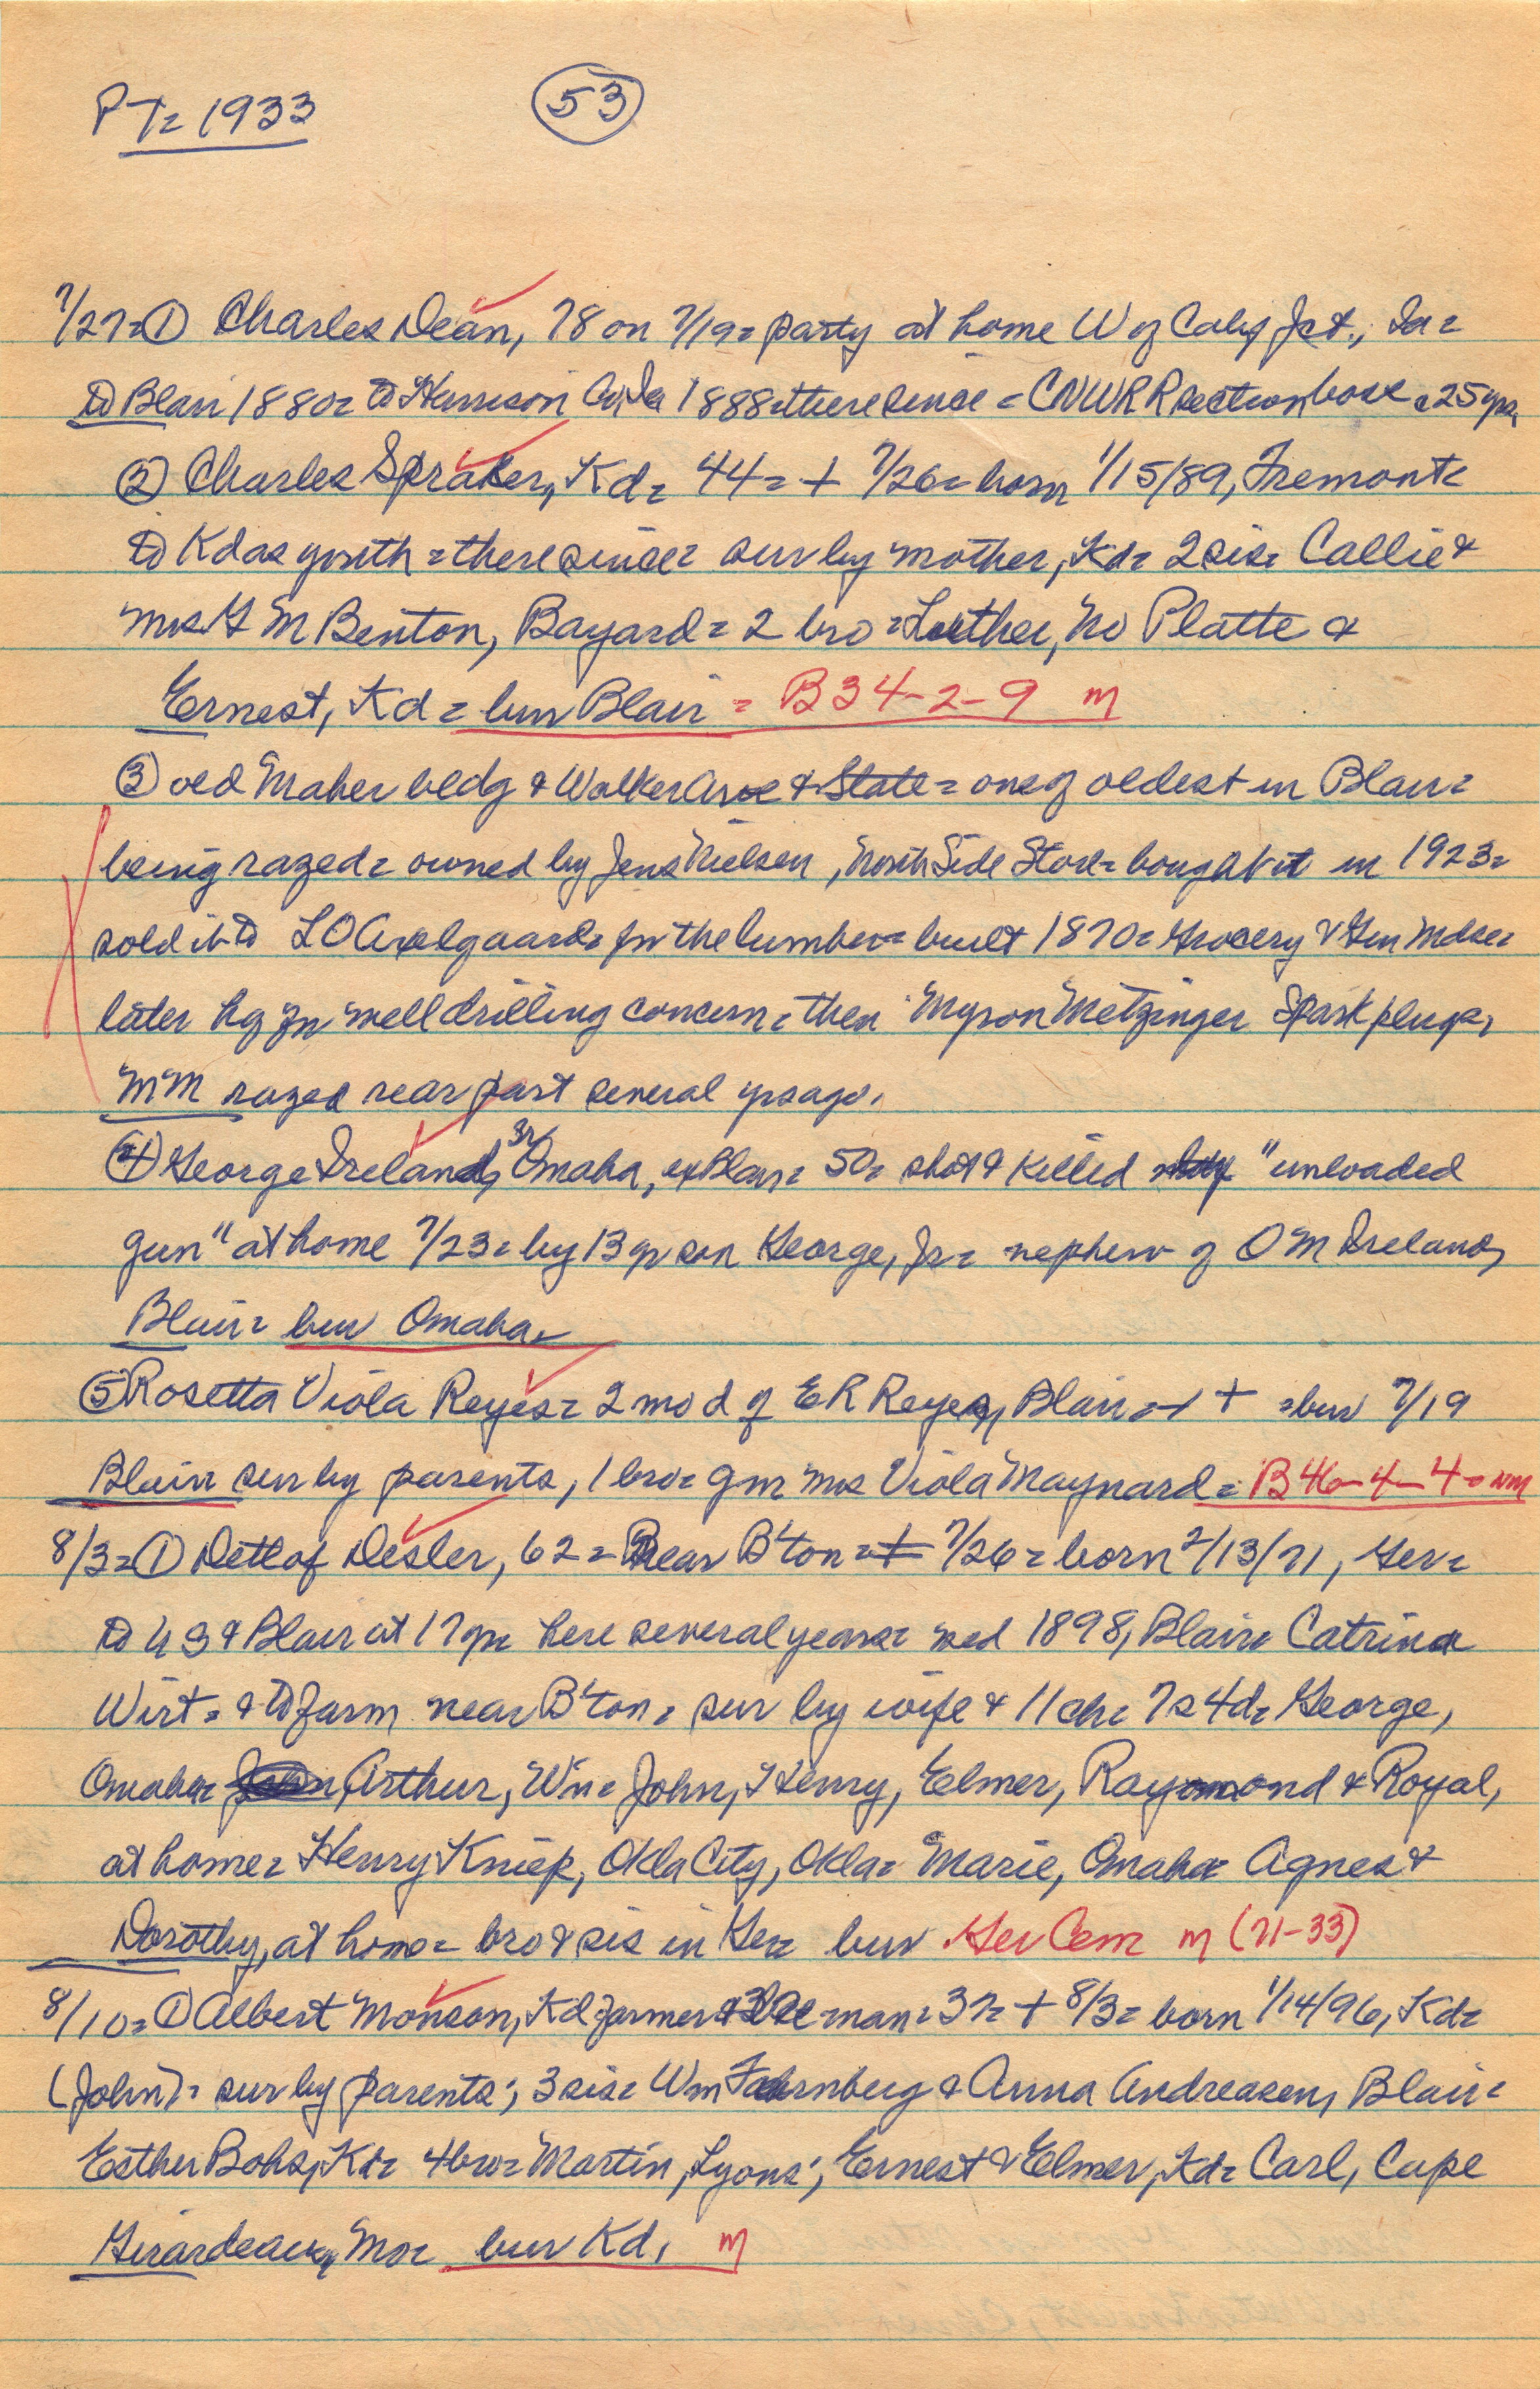 PT= 1933
53
7/27= ① Charles Dean, 78 on 7/19= party at home W of Calif Jct., Ia=
to Blair 1880= to Harrison Co, Ia 1888= there since = CNWRR section boss = 25 yrs.
② Charles Spraker, Kd= 44= + 7/26= born 1/15/89, Fremont=
to Kd as youth = there since= sur by mother, Kd= 2 sis= Callie &
Mrs M Benton, Bayard= 2 bro = Luther, No Platte &
Ernest, Kd = bur Blair = B34-2-9 m
③ old Maher bldg & Walker Ave & State = one of oldest in Blair=
being razed= owned by Jens Nielsen, North Side Store= bought it in 1923=
sold it to LO Axelgaard= for the lumber= built 1870= Grocery & Gen Mdse=
later hq for well drilling concern= then Myron Metzinger Spark plugs,
MM razed rear part several yrs ago.
④ George Ireland, Sr Omaha, ex Blair= 50= shot & killed "unloaded
gun" at home 7/23= by 13 yr son George, Jr= nephew of OM Ireland,
Blair= bur Omaha=
⑤ Rosetta Viola Reyes= 2 mo d of ER Reyes, Blair = + =bur 7/19
Blair sur by parents, 1 bro= gm Mrs Viola Maynard= B46-4-4= nm
8/3= ① Detlof Desler, 62= near B'ton = + 7/26= born 2/13/71, Ger=
to US & Blair at 17 yr= here several years= wed 1898, Blair= Catrina
Wirt= & to farm near B'ton= sur by wife & 11 ch= 7s 4d= George,
Omaha= Arthur, Wn= John, Henry, Elmer, Raymond & Royal,
at home= Henry Kniep, Okla City, Okla= Marie, Omaha= Agnes &
Dorothy, at home= bro & sis in Ger= bur Ger Cem m (71-33)
8/10= ① Albert Monson, Kd farmer & man= 37= + 8/3= born 1/14/96, Kd=
(John)= sur by parents; 3 sis= Wm Fahrnberg & Anna Andreasen, Blair=
Esther Bohs, Kd= 4 bro= Martin, Lyons; Ernest & Elmer, Kd= Carl, Cape
Girardeau, Mo= bur Kd, m